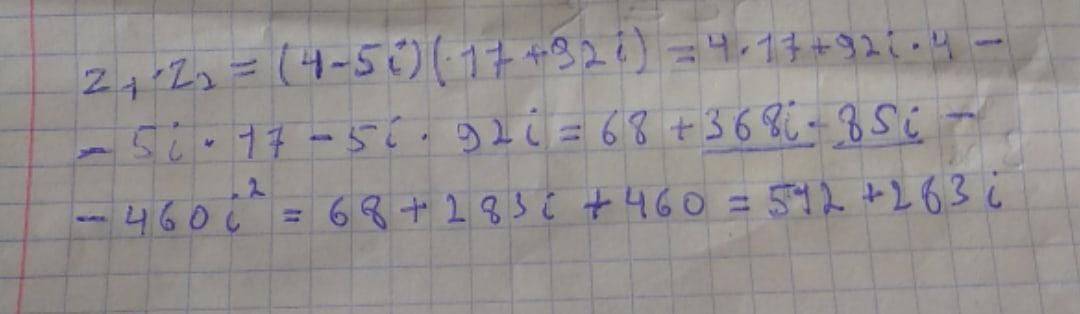 z₁·z₂ = (4-5i)(17+92i) = 4·17+92i·4 -
- 5i·17 - 5i·92i = 68 + 368i - 85i -
- 460i² = 68 + 283i + 460 = 592 + 263i